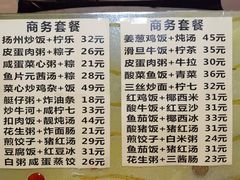 商务套餐
扬州炒饭+柠乐 32元
皮蛋肉粥+粽子 26元
咸蛋菜心粥+粽 21元
鱼片元茜汤+粽 28元
菜心炒鸡杂+饭 49元
艇仔粥+炸油条 18元
炒牛河+咸柠七 33元
扣肉饭+靓炖汤 44元
花生粥+炸面肠 21元
煎饺子+猪红汤 29元
豆腐饭+红豆冰 31元
白粥咸蛋蒸饺 26元
商务套餐
姜葱鸡饭+炖汤 45元
滑旦牛饭+柠茶 35元
皮蛋肉粥+牛拉 30元
酸菜鱼饭+青菜 36元
三丝炒面+柠七 32元
红鸡饭+椰西米 31元
鱼茄饭+椰西米 31元
酸鸡饭+猪红汤 31元
红鸡饭+猪红汤 31元
鱼茄饭+猪红汤 31元
煎饺子+猪红汤 29元
花生粥+三酱肠 23元